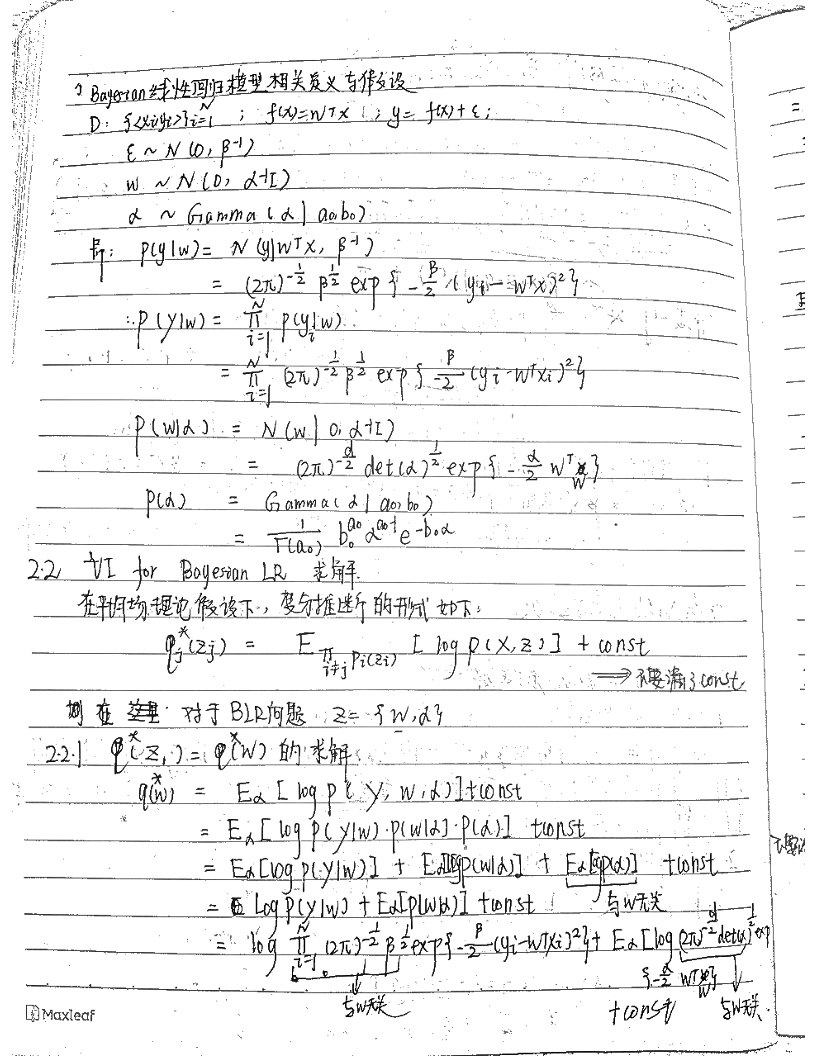 Bayesian线性回归模型相关定义与假设
D: {<xi yi>}i=1^N ; f(x)=wTx ; y= f(x)+ε;
ε ~ N(0, β^-1)
w ~ N(0, α^-1I)
α ~ Gamma(α|a0,b0)
即: p(y|w)= N(y|wTx, β^-1)
= (2π)^-1/2 β^1/2 exp{-β/2 (yi - wTx)^2}
∴P(Y|w)= ∏i=1^N p(yi|w)
= ∏i=1^N (2π)^-1/2 β^1/2 exp{-β/2 (yi-wTxi)^2}
p(w|α) = N(w|0,α^-1I)
= (2π)^-d/2 det(α)^1/2 exp{-α/2 wTw}
p(α) = Gamma(α|a0,b0)
= 1/Γ(a0) b0^a0 α^a0-1 e^-b0α
2.2 VI for Bayesian LR 求解
在平均场理论假设下, 变分推断的形式如下:
qj*(zj) = E∏i≠j pi(zi) [log p(X,z)] + const
⇒不要漏了const
则在这里 对于BLR问题 z={w,α}
2.2.1 q*(z1)=q*(w)的求解
q*(w) = Eα[log p(Y,w,α)]+const
= Eα[log p(Y|w)·p(w|α)·p(α)] +const
= Eα[log p(Y|w)] + Eα[logp(w|α)] + Eα[logp(α)] +const
= Log p(Y|w) + Eα[p(w|α)] +const 与w无关
= log ∏i=1^N (2π)^-1/2 β^1/2 exp{-β/2 (yi-wTxi)^2}+ Eα[log (2π)^-d/2 det(α)^1/2 exp
{-α/2 wTw}
与w无关 +const 与w无关
Maxleaf